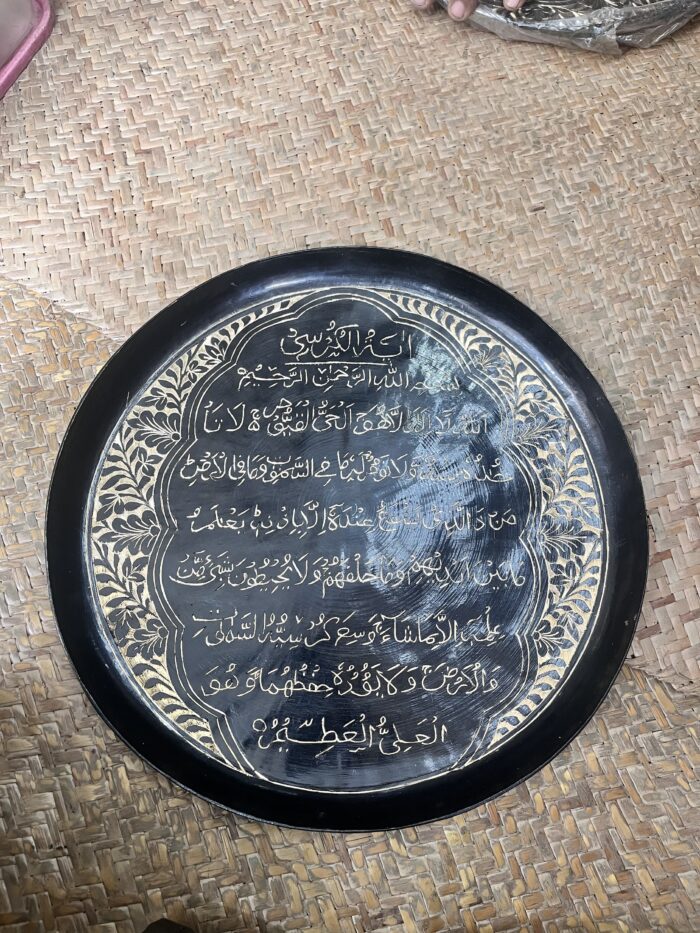 اٰیۃ الکرسی
بسم الله الرحمٰن الرحیم
الله لا الہ الا ھو الحی القیوم ج لا تا
خذہ سنۃ ولا نوم لہ ما فی السمٰوٰت وما فی الارض
من ذ الذی یشفع عندہ الا باذنہ یعلم
ما بین ایدیھم وما خلفھم ولا یحیطون بشیء من
علمہ الا بما شاء وسع کرسیہ السمٰوٰت
والارض ولا یؤدہ حفظھما وھو
العلی العظیم